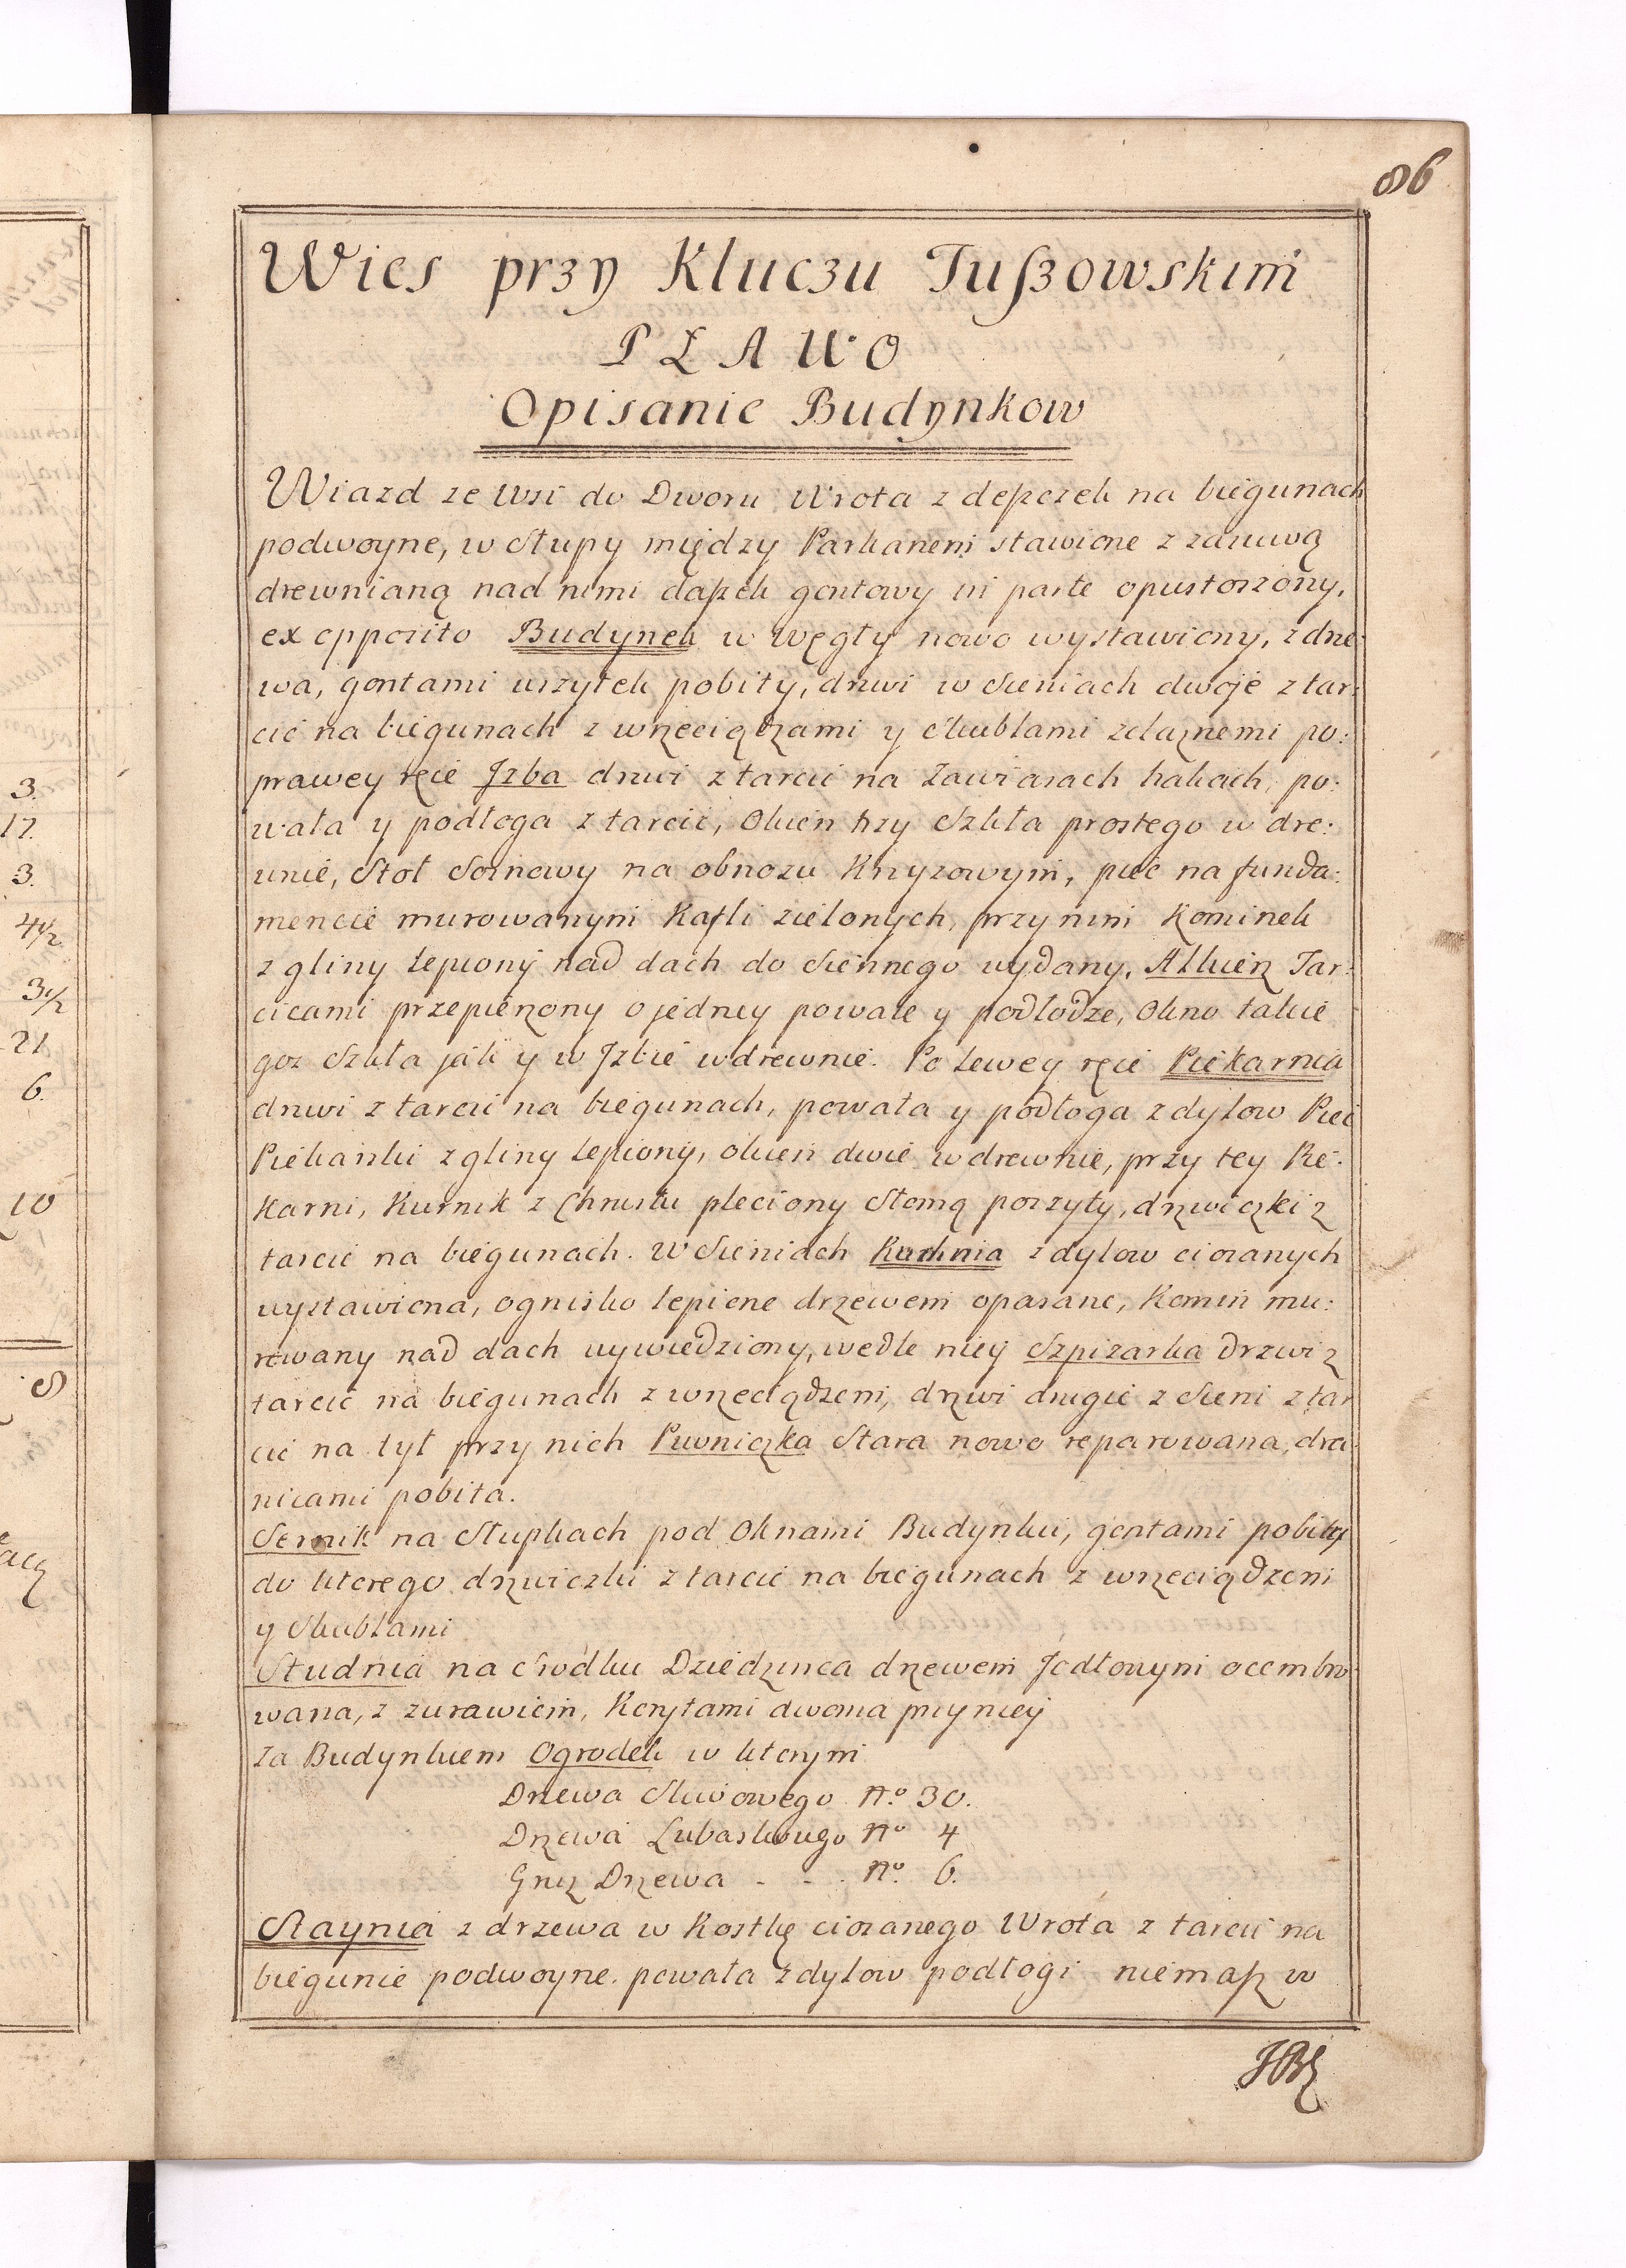 86
Wies przy Kluczu Tuszowskim
PŁAWO
Opisanie Budynkow
Wiazd ze Wsi do Dworu Wrota z depczek na biegunach
podwoyne, w Słupy między Parkanem stawione z zasuwą
drewnianą nad nimi daszek gontowy in parte opustoszony,
ex opposito Budynek w węgły nowo wystawiony, z drze:
wa, gontami wszytek pobity, drzwi w Sieniach dwoje z tar:
cic na biegunach z wrzeciądzami y Skublami zelaznemi po:
prawey ręce Jzba drzwi z tarcic na Zawiasach hakach, po:
wała y podłoga z tarcic, Okien trzy Szkła prostego w dre:
wnie, Stoł Sosnowy na obnozu Krzyzowym, piec na funda:
mencie murowanym Kafli zielonych, przy nim Kominek
z gliny lepiony nad dach do Siennego wydany, Alkierz Tar:
cicami przepierzony o jedney powale y podłodze, Okno takie
goz Szkła jak y w Jzbie w drewnie. Po Lewey ręce Piekarnia
drzwi z tarcic na biegunach, powała y podłoga z dylow Piec
Piekarski z gliny lepiony, okien dwie w drewnie, przy tey Pie:
karni, Kurnik z Chrustu pleciony Słomą poszyty, drzwiczki z
tarcic na biegunach. W Sieniach Kuchnia z dylow ciosanych
wystawiona, ognisko lepione drzewem opasane, Komin mu:
rowany nad dach wywiedziony, wedle niey Szpizarka drzwi z
tarcic na biegunach z wrzeciądzem, drzwi drugie z Sieni z tar
cic na tył przy nich Piwniczka Stara nowo reparowana, dra:
nicami pobita.
Sernik na Słupkach pod Oknami Budynku, gontami pobity
do ktorego drzwiczki z tarcic na biegunach z wrzeciądzem
y Skublami
Studnia na Srodku Dziedzinca drzewem Jodłowym ocembro
wana, z zurawiem, Korytami dwoma przy niey
Za Budynkiem Ogrodek w ktorym
Drzewa Sliwowego No 30.
Drzewa Lubaskowego No 4
Grusz Drzewa - - . No. 6.
Staynia z drzewa w Kostkę ciosanego Wrota z tarcic na
biegunie podwoyne. powała z dylow podłogi niemasz w
3.
17.
3.
4 1/2
3 1/2
21
6.
10
8